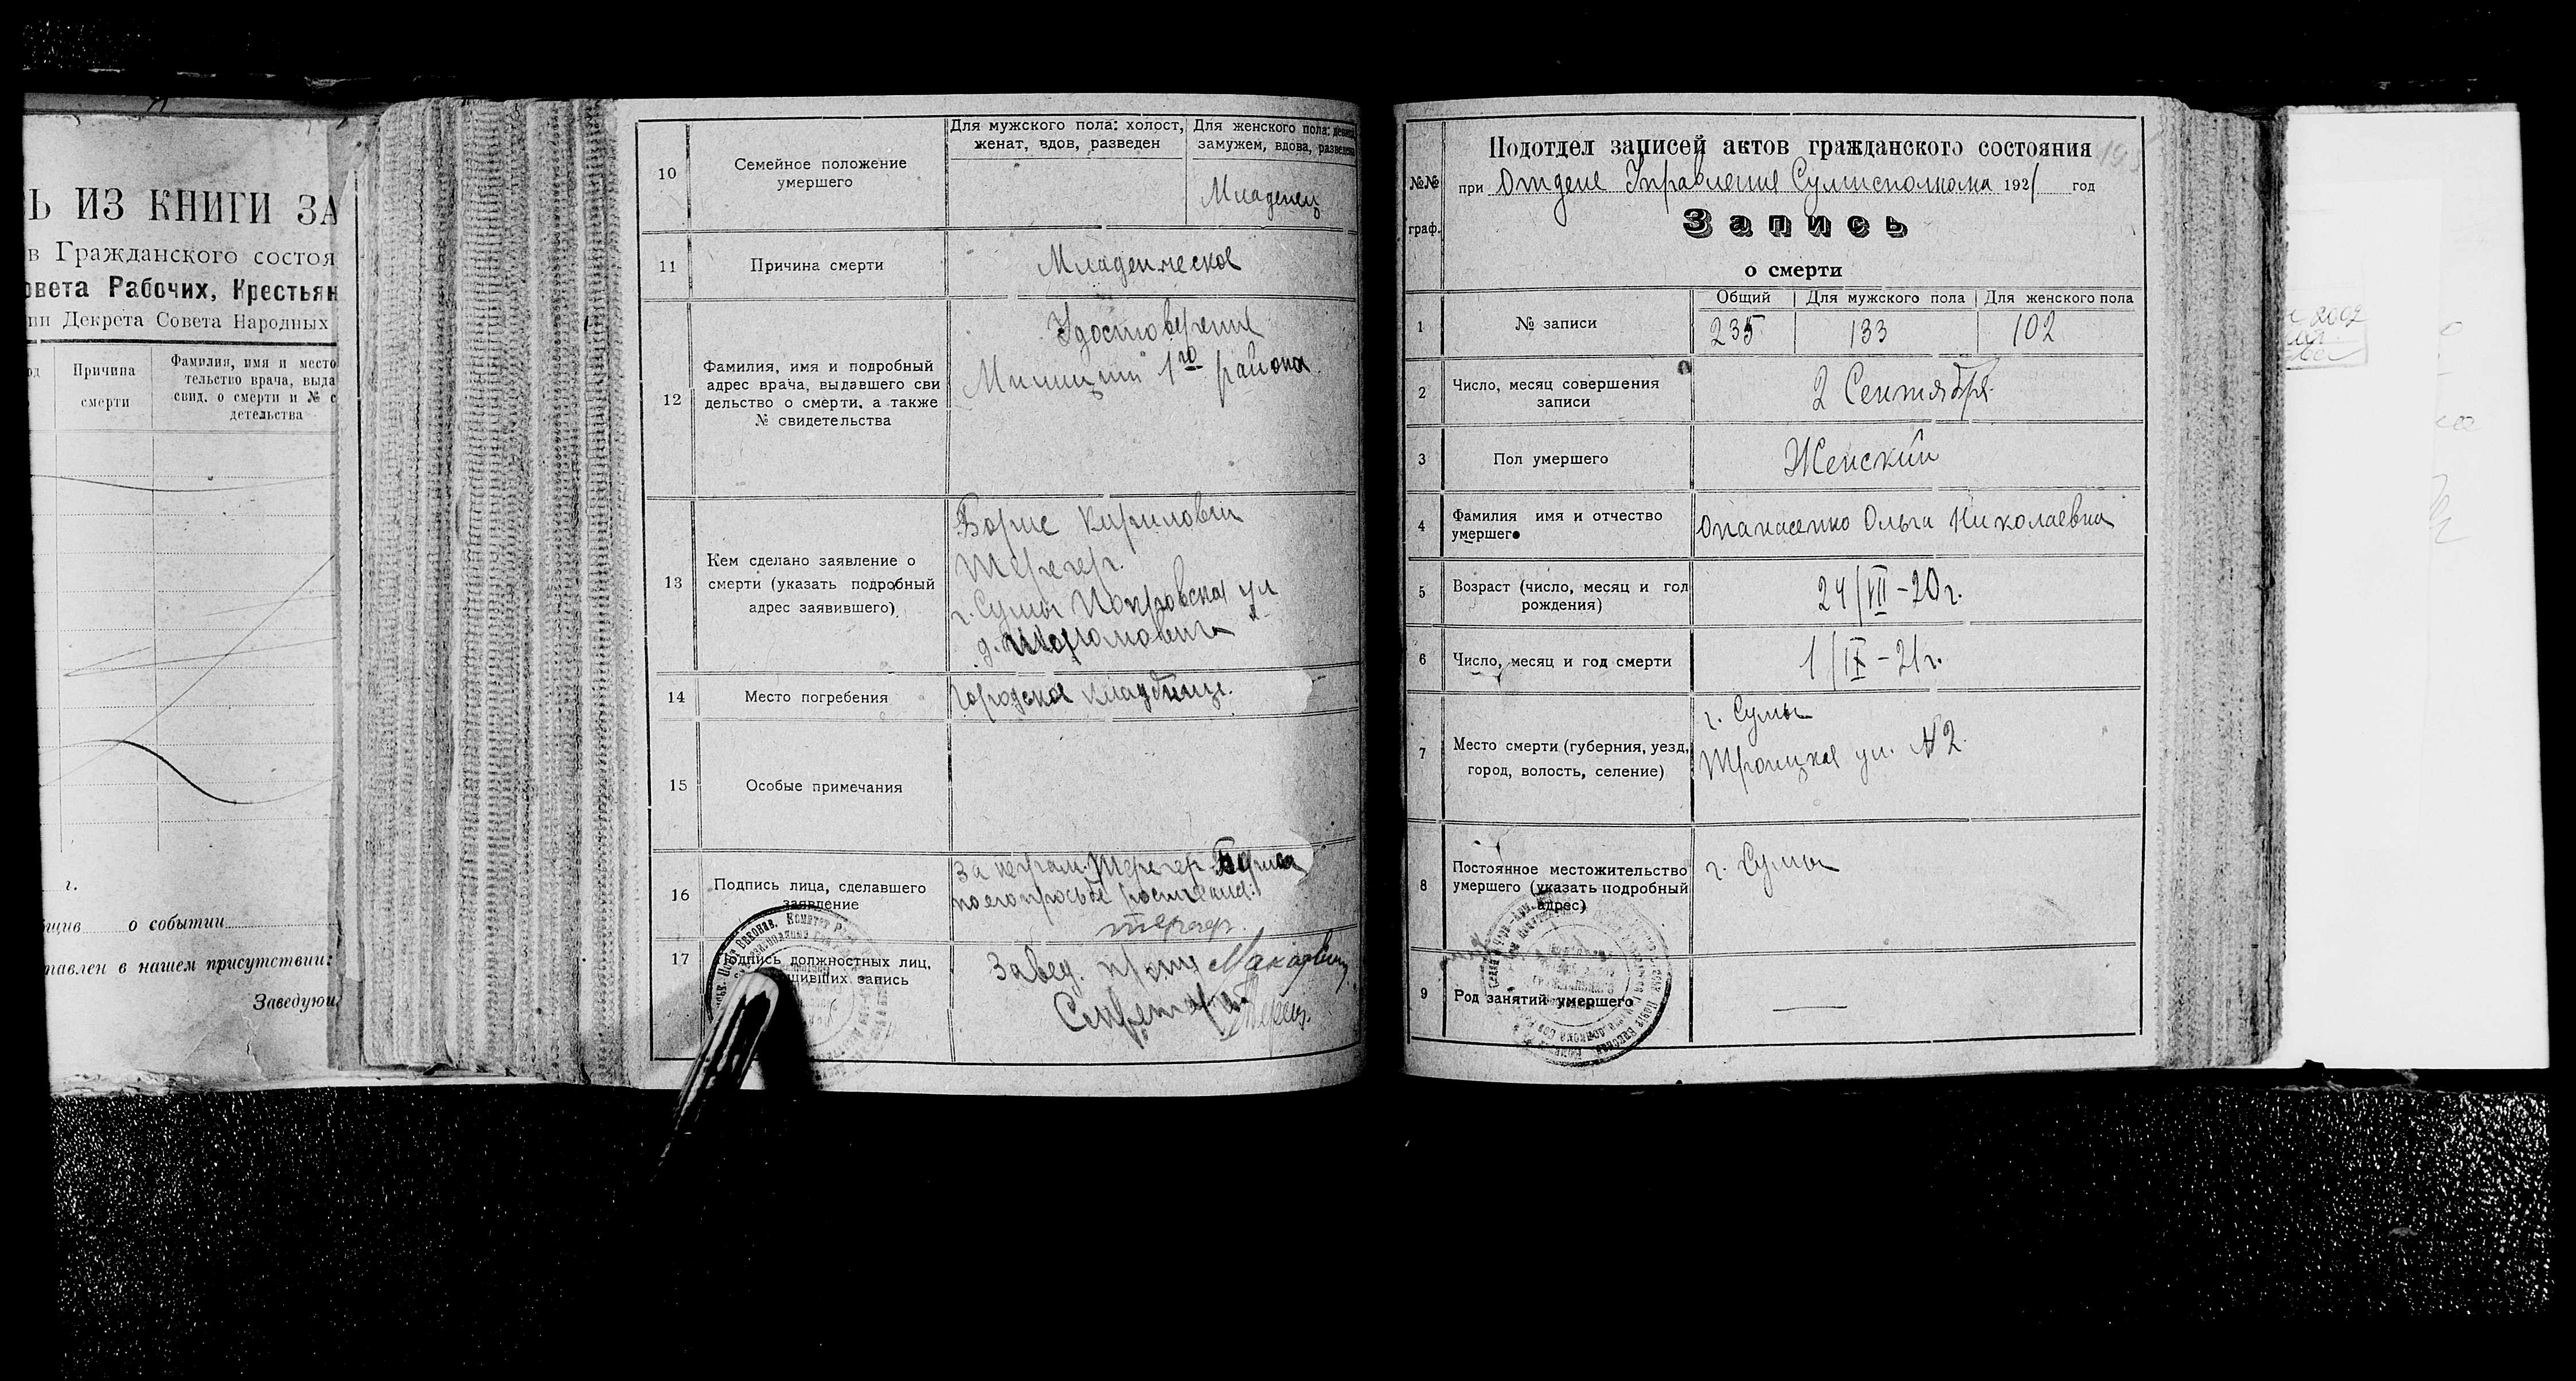 Ь ИЗ КНИГИ ЗА
в Гражданского состоя
овета Рабочих, Крестьян
ии Декрета Совета Народных
од
Причина
смерти
Фамилия, имя и место
тельство врача, выда
свид. о смерти и № с
детельства
г.
бщив о событии
тавлен в нашем присутствии:
Заведую
10
Семейное положение
умершего
Для мужского пола: холост,
женат, вдов, разведен
Для женского пола: девица,
замужем, вдова, разведена
Младенец
11
Причина смерти
Младенческая
12
Фамилия, имя и подробный
адрес врача, выдавшего сви
дельство о смерти, а также
№ свидетельства
Удостоверение
Милиции 1го района
13
Кем сделано заявление о
смерти (указать подробный
адрес заявившего)
Борис Кирилович
г. Сумы Покровская ул
14
Место погребения
Городское кладбище.
15
Особые примечания
16
Подпись лица, сделавшего
заявление
17
Подпись должностных лиц,
Завед.
Секретарь
№№
граф.
Подотдел записей актов гражданского состояния
при Отделе Управления Сумисполкома 1921 год
Запись
о смерти
1
№ записи
Общий
Для мужского пола
Для женского пола
235
133
102
2
Число, месяц совершения
записи
2 Сентября
3
Пол умершего
Женский
4
Фамилия имя и отчество
умершего
Опанасенко Ольга Николаевна
5
Возраст (число, месяц и год
рождения)
24/VII-20г.
6
Число, месяц и год смерти
1/IX-21г.
7
Место смерти (губерния, уезд,
город, волость, селение)
г. Сумы
Троицкая ул. №2
8
Постоянное местожительство
умершего (указать подробный
адрес)
г. Сумы
9
Род занятий умершего
2002